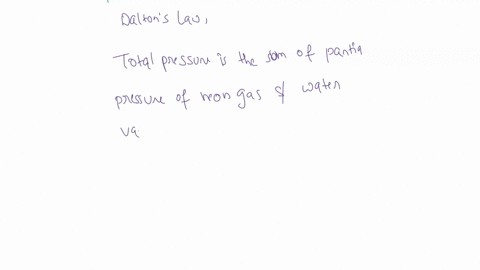 Dalton's Law,
Total pressure is the sum of partia
pressure of neon gas & water
va